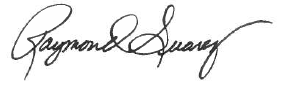 Raymond Suarez